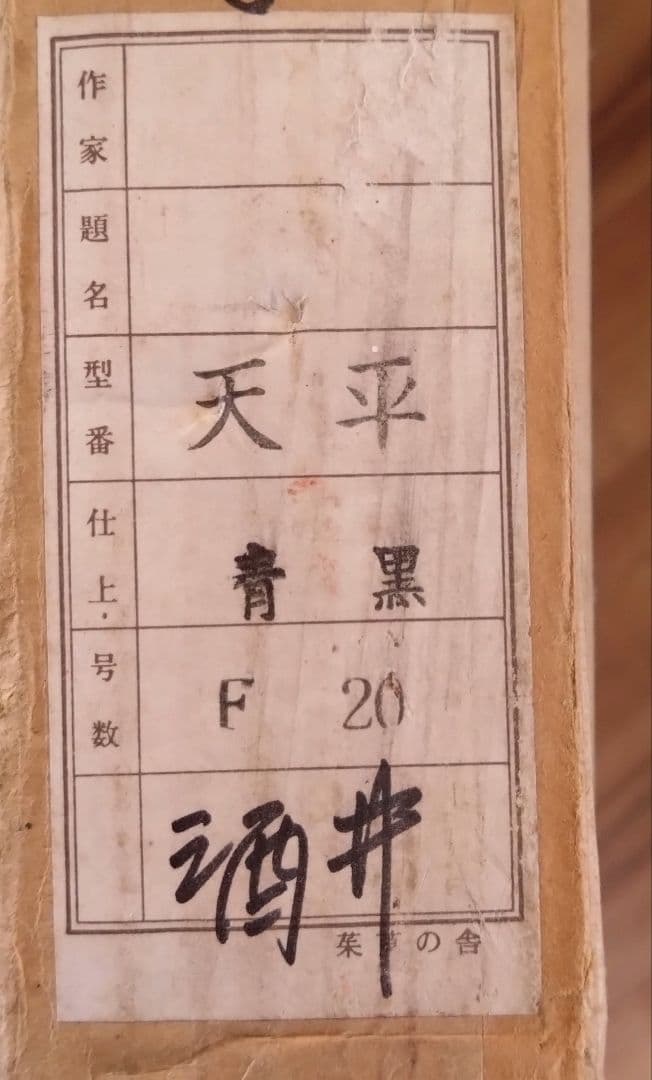 作家
題名
型番 天平
仕上・ 青黒
号数 F 20
酒井
の舎